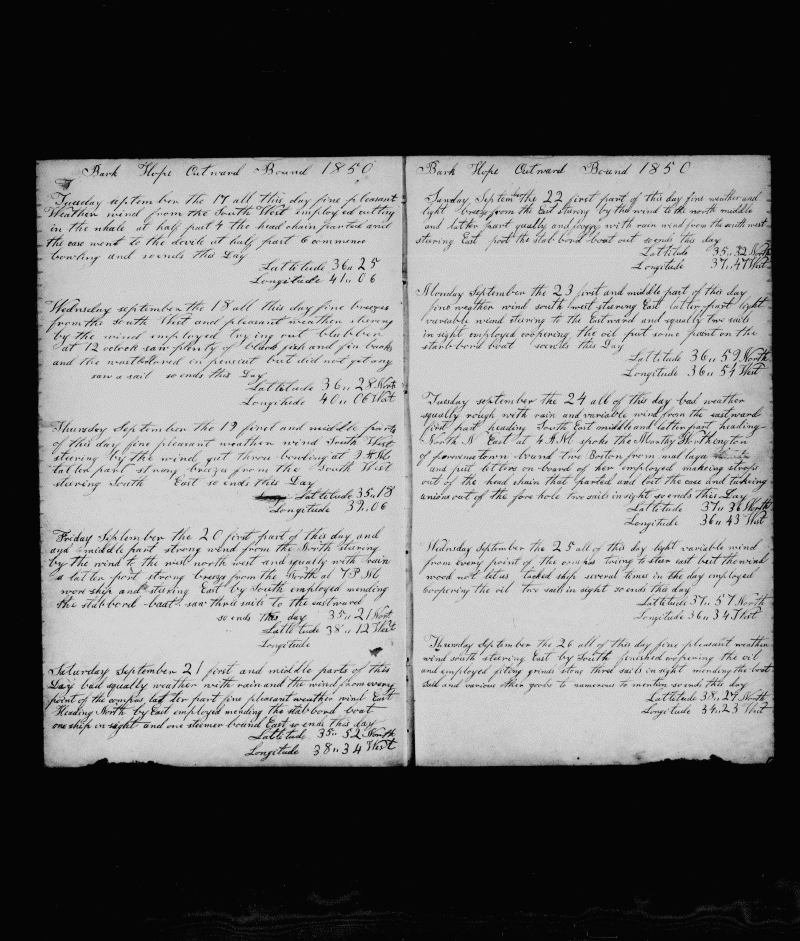 Bark Hope Outward Bound 1850
Tuesday september the 17 all this day fine pleasant
Weather wind from the South West employed cutting
in the whale at half past 4 the head chain parted and
the case went to the devile at half past 6 commence
bowling and so ends this Day
Lattitude 36 " 25
Longitude 41 " 06
Wednesday september the 18 all this day fine breezes
from the South West and pleasant weather stering
by the wind employed trying out blubber
at 12 oclock saw plenty of fish and fin backs
and the wastbolored in persuit but did not get any
saw a sail so ends this Day
Lattitude 36 " 28 North
Longitude 40 " 06 West
Thursday September the 19 first and middle parts
of this day fine pleasant weather wind South West
steering by the wind got threw bowling at 9 AM
latter part strong breeze from the South West
steering South East so ends this Day
Lattitude 35 " 18
Longitude 39 " 06
Friday September the 20 first part of this day and
and middle part strong wind from the North stering
by the wind to the west north west and squally with rain
a latter part strong breeze from the North at 7 PM
wore ship and stering East by South employed mending
the stabbord boat saw three sails to the eastward
so ends this day 35 " 21 North
Lattitude 38 " 12 West
Longitude
Saturday September 21 first and middle parts of this
Day bad squally weather with rain and the wind from every
point of the compas latter part fine pleasant weather wind East
Heading North by East employed mending the stabbord boat
one ship in sight and one steemer bound East so ends this day
Lattitude 35 " 52 North
Longitude 38 " 34 West
Bark Hope Outward Bound 1850
Sunday September the 22 first part of this day fine weather and
light breeze from the East stering by the wind to the north middle
and latter part qually and foggy with rain wind from the south west
steering East the stabbord boat out so ends this day
Lattitude 35 " 32 North
Longitude 37 " 47 West
Monday September the 23 first and middle part of this day
fine weather wind south west steering East latter part light
variable wind steering to the Eastward and squally two sails
in sight employed coopering the oil put some paint on the
starbbord boat so ends this Day
Lattitude 36 " 59 North
Longitude 36 " 54 West
Tuesday september the 24 all of this day bad weather
squally rough with rain and variable wind from the eastward
first part heading South East middle and latter part heading
North N East at 4 AM spoke the Worthington
of provincetown bound two Boston from malaga
and put letters on board of her employed makeing strops
out of the head chain that parted and lost the case and takeing
onions out of the fore hole two sails in sight so ends this Day
Lattitude 37 " 26 North
Longitude 36 " 43 West
Wednesday September the 25 all of this day light variable wind
from every point of the compas trying to steer east but the wind
wood not let us tacked ship several times in the day employed
coopering the oil two sail in sight so ends this day
Lattitude 37 " 57 North
Longitude 36 " 34 West
Thursday September the 26 all of this day fine pleasant weather
wind south steering East by South finished coopering the oil
and employed fiting grinds stone three sails in sight mending the boat
sail and various other to numerous to mention so ends this day
Lattitude 38 " 29 North
Longitude 34 " 23 West